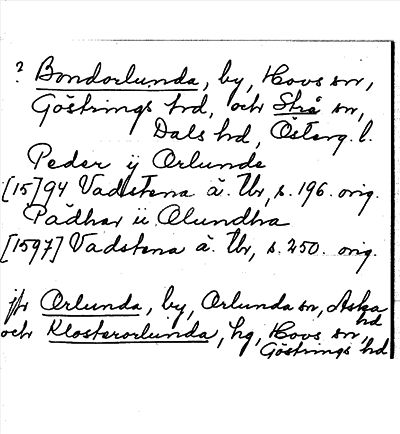 ? Bondorlunda, by, Hovs sn,
Göstrings hd, och Strå sn,
Dals hd, Österg. l.
Peder ÿ Orlunde
[15]94 Vadstena ä. Tb, s. 196. orig.
Pädhar ii Olundha
[1597] Vadstena ä. Tb, s. 250. orig.
jfr Orlunda, by, Orlunda sn, Aska hd
och Klosterorlunda, hg, Hovs sn,
Göstrings hd